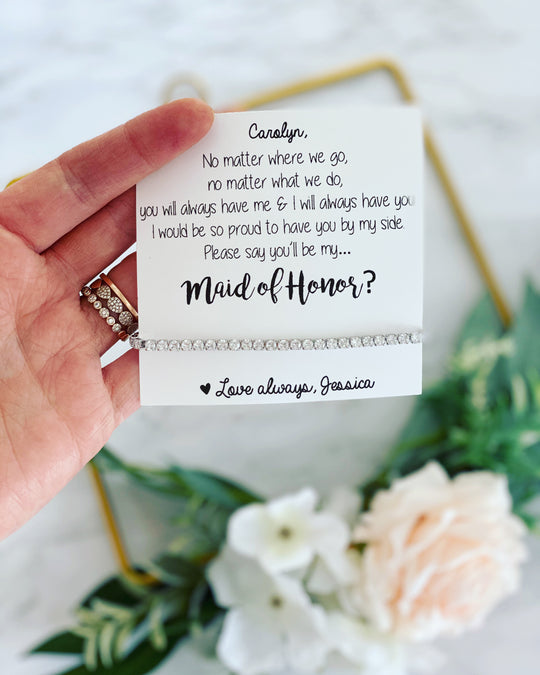 Carolyn,
No matter where we go,
no matter what we do,
you will always have me & I will always have you
I would be so proud to have you by my side.
Please say you'll be my...
Maid of Honor?
♥ Love always, Jessica